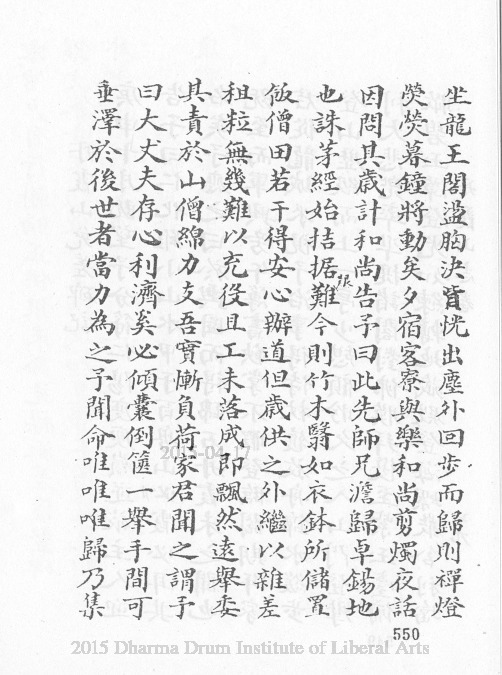 坐龍王閣盪胸決眥恍出塵外回步而歸則禪燈
熒熒暮鐘將動矣夕宿客寮與樂和尚剪燭夜話
因問其歲計和尚告予曰此先師兄澹歸卓錫地
也誅茅經始拮据難張今則竹木翳如衣鉢所儲置
飯僧田若干得安心辦道但歲供之外繼以雜差
租粒無幾難以充役且工未落成即飄然遠舉委
其責於山僧綿力支吾實慚負荷家君聞之謂予
曰大丈夫存心利濟矣必傾囊倒篋一舉手間可
垂澤於後世者當力為之予聞命唯唯唯歸乃集
550
2015-04-17
2015 Dharma Drum Institute of Liberal Arts